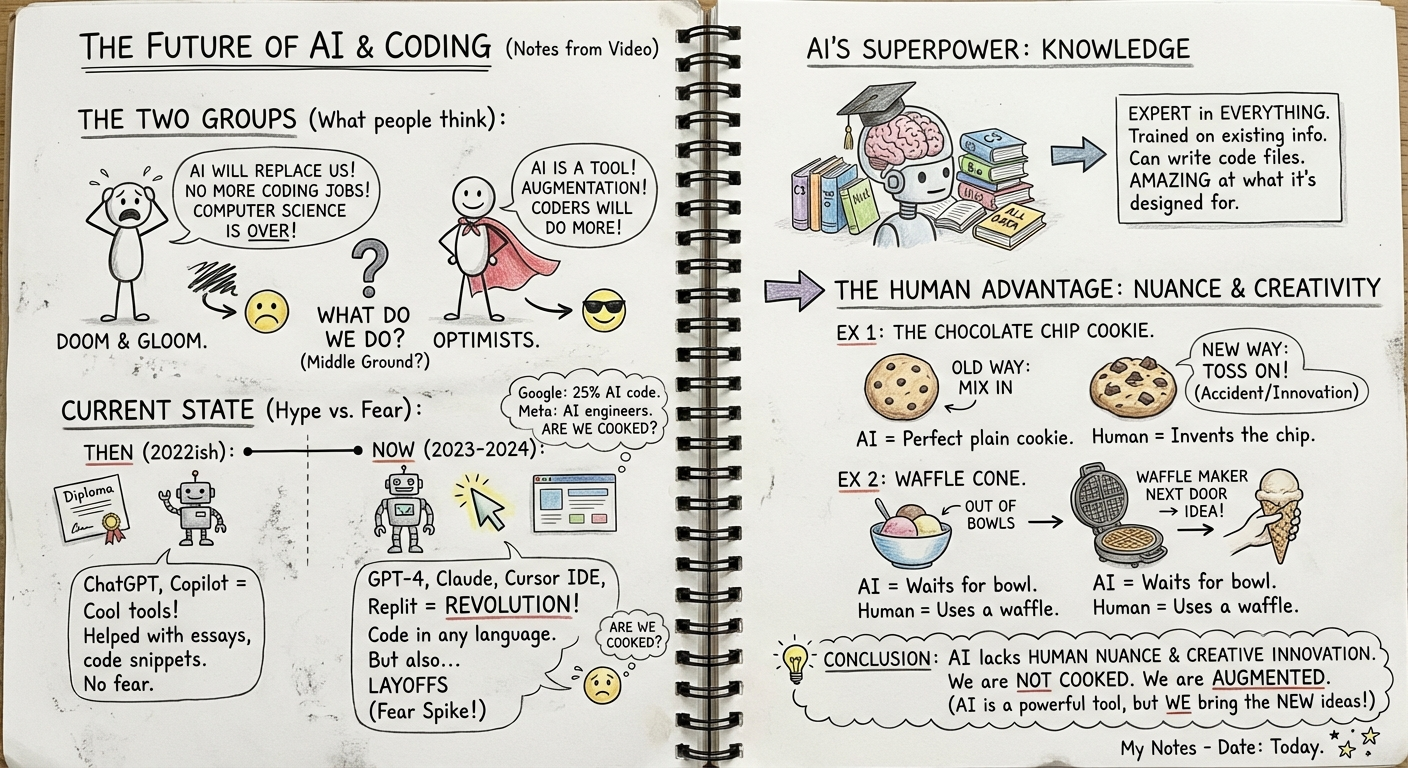 THE FUTURE OF AI & CODING (Notes from Video)
THE TWO GROUPS (What people think):
AI WILL REPLACE US!
NO MORE CODING JOBS!
COMPUTER SCIENCE
IS OVER!
AI IS A TOOL!
AUGMENTATION!
CODERS WILL
DO MORE!
DOOM & GLOOM.
?
WHAT DO
WE DO?
(Middle Ground?)
OPTIMISTS.
CURRENT STATE (Hype vs. Fear):
Google: 25% AI code.
Meta: AI engineers.
ARE WE COOKED?
THEN (2022ish):
NOW (2023-2024):
Diploma
ChatGPT, Copilot =
Cool tools!
Helped with essays,
code snippets.
No fear.
GPT-4, Claude, Cursor IDE,
Replit = REVOLUTION!
Code in any language.
But also...
LAYOFFS
(Fear Spike!)
ARE WE
COOKED?
AI'S SUPERPOWER: KNOWLEDGE
ALL
DATA
EXPERT in EVERYTHING.
Trained on existing info.
Can write code files.
AMAZING at what it's
designed for.
THE HUMAN ADVANTAGE: NUANCE & CREATIVITY
EX 1: THE CHOCOLATE CHIP COOKIE.
OLD WAY:
MIX IN
NEW WAY:
TOSS ON!
(Accident/Innovation)
AI = Perfect plain cookie.
Human = Invents the chip.
EX 2: WAFFLE CONE.
OUT OF
BOWLS
WAFFLE MAKER
NEXT DOOR
→ IDEA!
AI = Waits for bowl.
Human = Uses a waffle.
AI = Waits for bowl.
Human = Uses a waffle.
CONCLUSION: AI lacks HUMAN NUANCE & CREATIVE INNOVATION.
We are NOT COOKED. We are AUGMENTED.
(AI is a powerful tool, but WE bring the NEW ideas!)
My Notes - Date: Today.